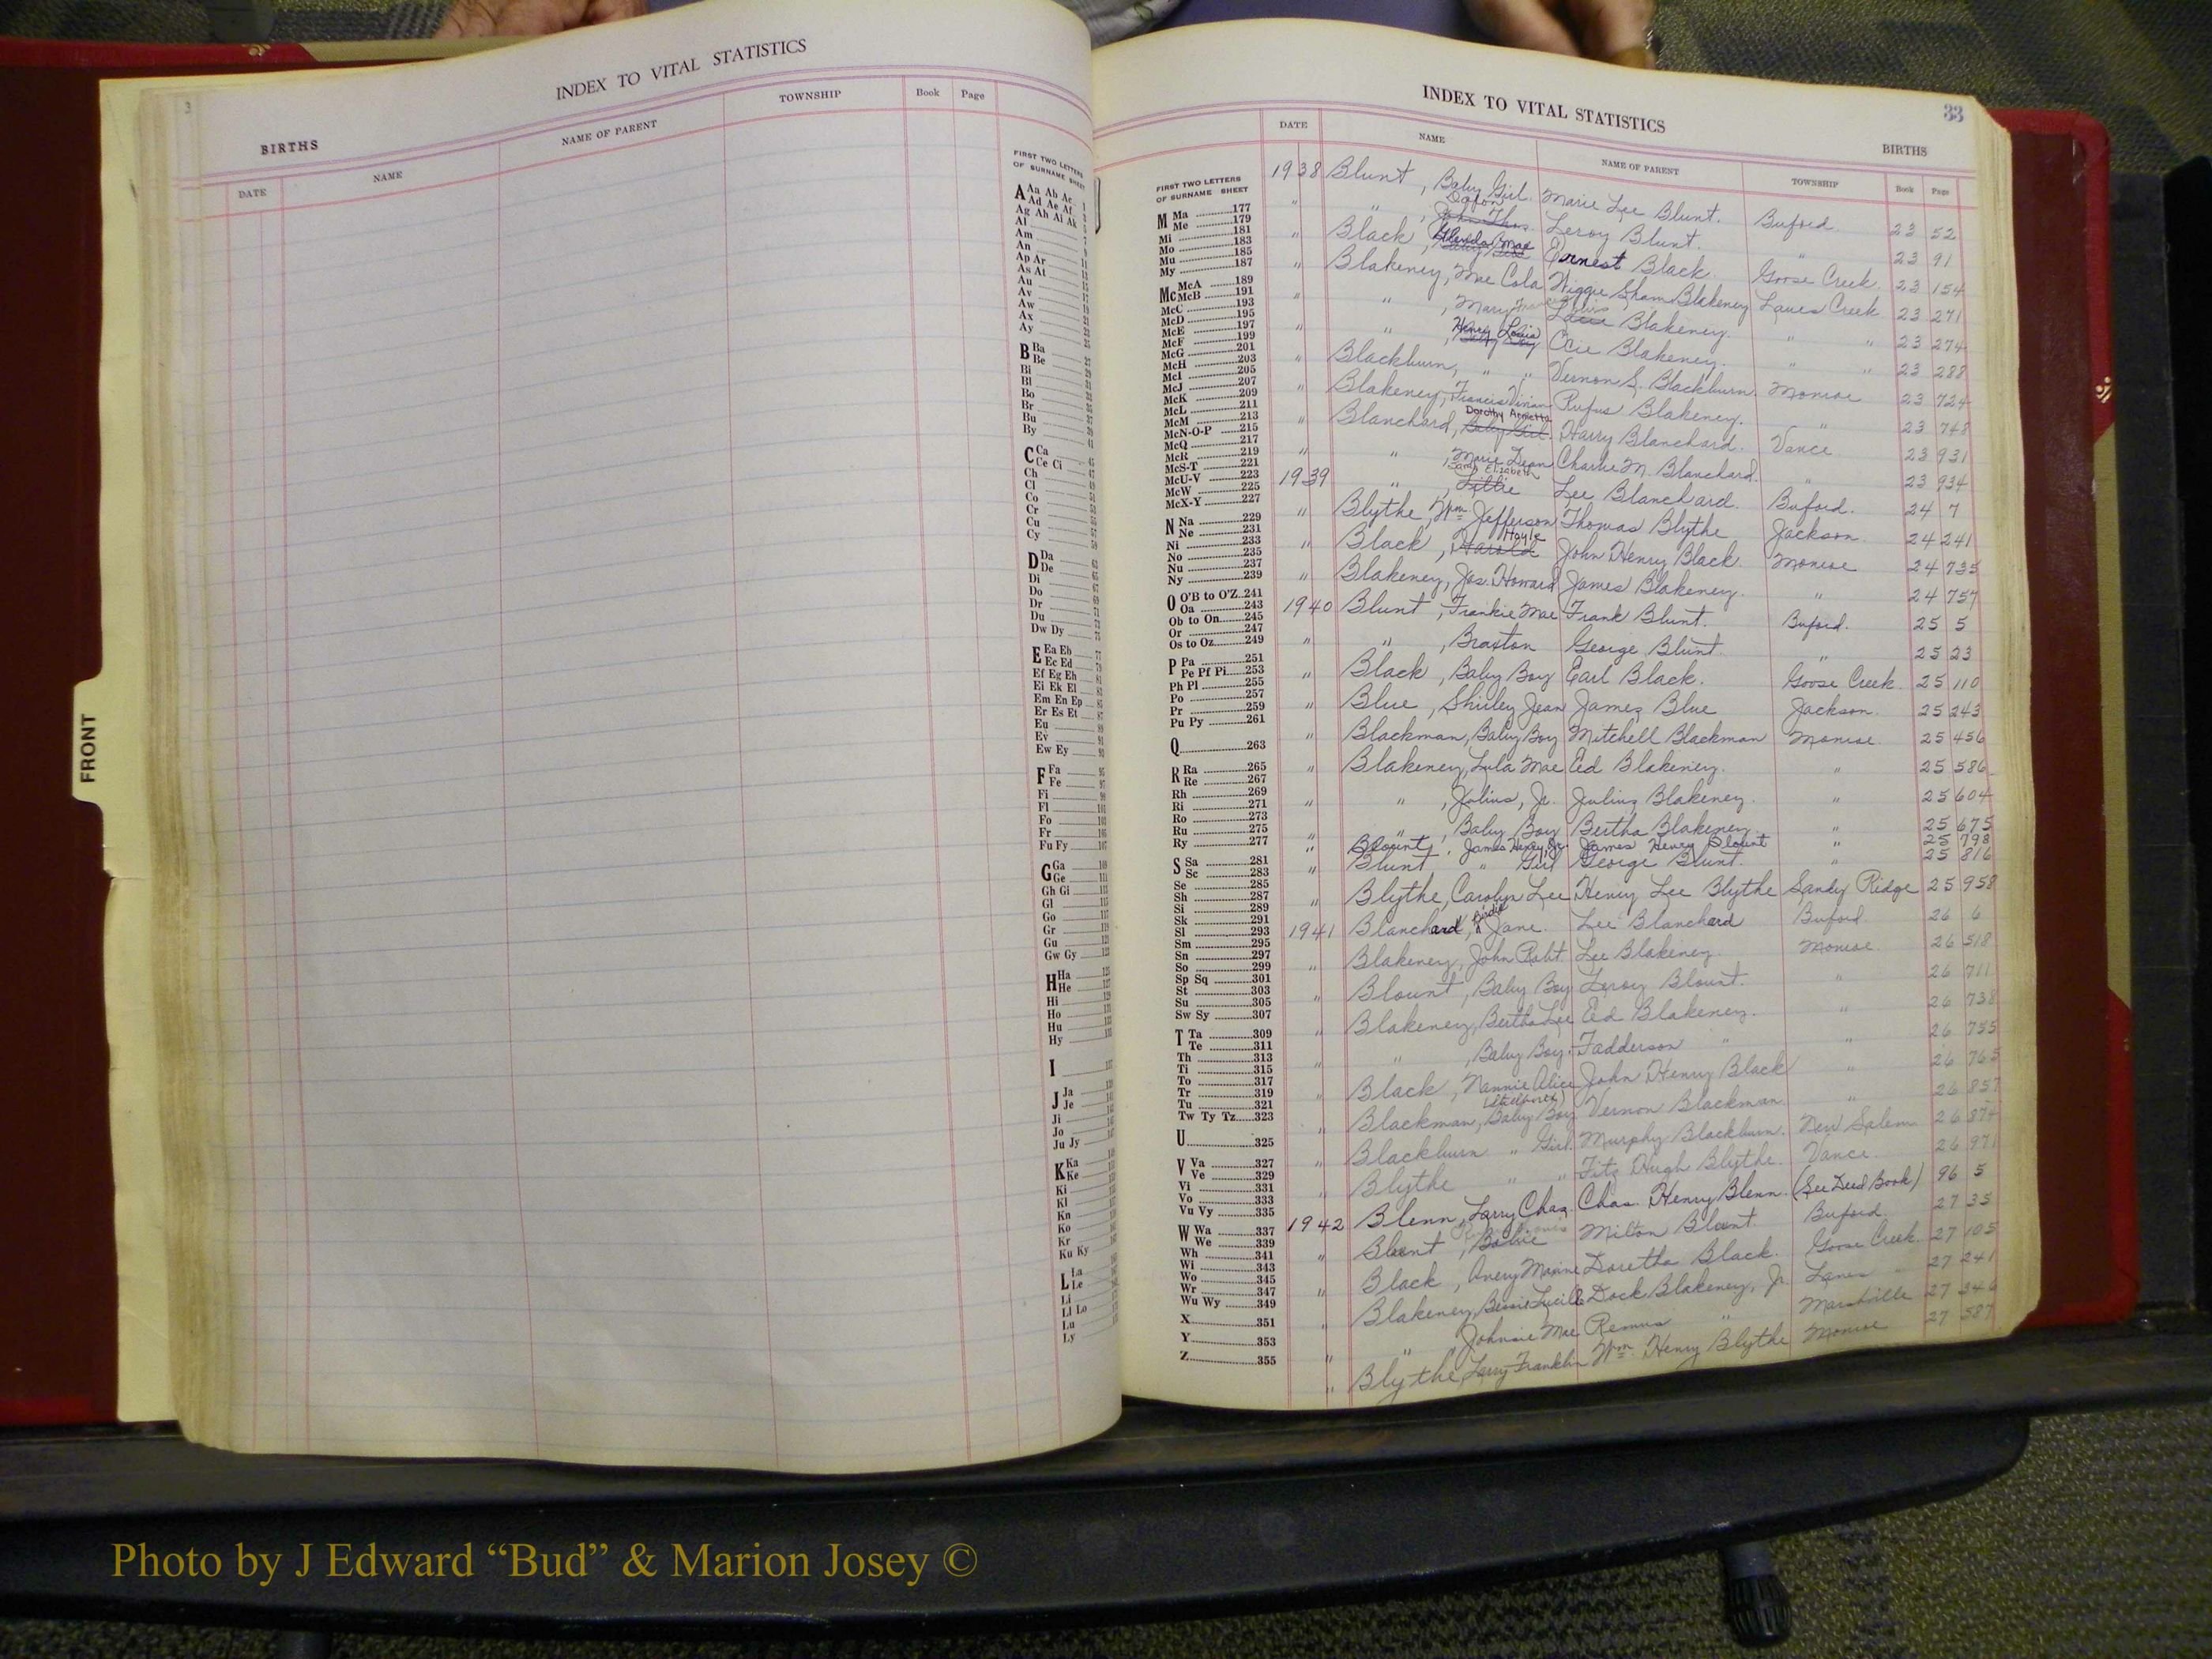 INDEX TO VITAL STATISTICS
3
BIRTHS
DATE NAME NAME OF PARENT TOWNSHIP Book Page
FIRST TWO LETTERS
OF SURNAME SHEET
A Aa Ab Ac
Ad Ae Af
Ag Ah Ai Ak
Al
Am
An
Ap Ar
As At
Au
Av
Aw
Ax
Ay
B Ba
Be
Bi
Bl
Bo
Br
Bu
By
C Ca
Ce Ci
Ch
Cl
Co
Cr
Cu
Cy
D Da
De
Di
Do
Dr
Du
Dw Dy
E Ea Eb
Ec Ed
Ef Eg Eh
Ei Ek El
Em En Ep
Er Es Et
Eu
Ev
Ew Ey
F Fa
Fe
Fi
Fl
Fo
Fr
Fu Fy
G Ga
Ge
Gh Gi
Gl
Go
Gr
Gu
Gw Gy
H Ha
He
Hi
Ho
Hu
Hy
I
J Ja
Je
Ji
Jo
Ju Jy
K Ka
Ke
Ki
Kl
Kn
Ko
Kr
Ku Ky
L La
Le
Li
Ll Lo
Lu
Ly
FRONT
INDEX TO VITAL STATISTICS
33
BIRTHS
DATE NAME NAME OF PARENT TOWNSHIP Book Page
FIRST TWO LETTERS
OF SURNAME SHEET
M Ma 177
Me 179
Mi 181
Mo 183
Mu 185
My 187
Mc McA 189
McB 191
McC 193
McD 195
McE 197
McF 199
McG 201
McH 203
McI 205
McJ 207
McK 209
McL 211
McM 213
McN-O-P 215
McQ 217
McR 219
McS-T 221
McU-V 223
McW 225
McX-Y 227
N Na 229
Ne 231
Ni 233
No 235
Nu 237
Ny 239
O O'B to O'Z 241
Oa 243
Ob to On 245
Or 247
Os to Oz 249
P Pa 251
Pe Pf Pi 253
Ph Pl 255
Po 257
Pr 259
Pu Py 261
Q 263
R Ra 265
Re 267
Rh 269
Ri 271
Ro 273
Ru 275
Ry 277
S Sa 281
Sc 283
Se 285
Sh 287
Si 289
Sk 291
Sl 293
Sm 295
Sn 297
So 299
Sp Sq 301
St 303
Su 305
Sw Sy 307
T Ta 309
Te 311
Th 313
Ti 315
To 317
Tr 319
Tu 321
Tw Ty Tz 323
U 325
V Va 327
Ve 329
Vi 331
Vo 333
Vu Vy 335
W Wa 337
We 339
Wh 341
Wi 343
Wo 345
Wr 347
Wu Wy 349
X 351
Y 353
Z 355
1938 Blunt, Baby Girl Marie Lee Blunt. Buford. 23 52
" " , John Thos. Leroy Blunt. " 23 91
" Black, Glenda Mae Ernest Black. Goose Creek. 23 154
" Blakeney, Mae Cola Wiggie Sham Blakeney Lanes Creek 23 271
" " , Mary Blakeney. " " 23 274
" " , Henry Louis Ocie Blakeney. " " 23 288
" Blackburn, " " Vernon S. Blackburn. Monroe 23 724
" Blakeney, Francis Vivian Rufus Blakeney. " 23 748
" Blanchard, Dorothy Annetta Baby Girl. Harry Blanchard. Vance 23 931
" " , Marie Dean Charlie M. Blanchard. " 23 934
1939 " Sarah Elizabeth Lillie Lee Blanchard. Buford. 24 7
" Blythe, Wm. Jefferson Thomas Blythe Jackson. 24 241
" Black, Harold Hoyle John Henry Black Monroe 24 735
" Blakeney, Jas. Howard James Blakeney. " 24 757
1940 Blunt, Frankie Mae Frank Blunt. Buford. 25 5
" " , Braxton George Blunt. " 25 23
" Black, Baby Boy Earl Black. Goose Creek 25 110
" Blue, Shirley Jean James Blue Jackson. 25 243
" Blackman, Baby Boy Mitchell Blackman Monroe. 25 456
" Blakeney, Lula Mae Ed Blakeney. " 25 586
" " , Julius, Jr. Julius Blakeney. " 25 604
" " , Baby Boy Bertha Blakeney " 25 675
" Blount, James Henry, Jr. James Henry Blount " 25 798
" Blunt " Girl George Blunt. " 25 816
" Blythe, Carolyn Lee Henry Lee Blythe Sandy Ridge 25 958
1941 Blanchard, Birdie Jane. Lee Blanchard Buford 26 6
" Blakeney, John Robt. Lee Blakeney. Monroe. 26 518
" Blount, Baby Boy Leroy Blount. " 26 711
" Blakeney, Bertha Lee Ed Blakeney. " 26 738
" " , Baby Boy. Fadderson " " 26 755
" Black, Nannie Alice John Henry Black " 26 765
" Blackman, Baby Boy Vernon Blackman " 26 857
" Blackburn " Girl. Murphy Blackburn. New Salem 26 874
" Blythe " " Fitz Hugh Blythe. Vance. 26 971
Blenn, Larry Chas. Chas. Henry Blenn. (See Deed Book) 96 5
1942 Blount, Milton Blount. Buford. 27 35
" Black, Avery Maxine Doretha Black. Goose Creek. 27 105
" Blakeney, Bessie Lucille Dock Blakeney, Jr. Lanes " 27 241
" " Johnsie Mae Remus " Marshville 27 346
" Blythe, Larry Franklin Wm. Henry Blythe Monroe 27 587
Photo by J Edward “Bud” & Marion Josey ©